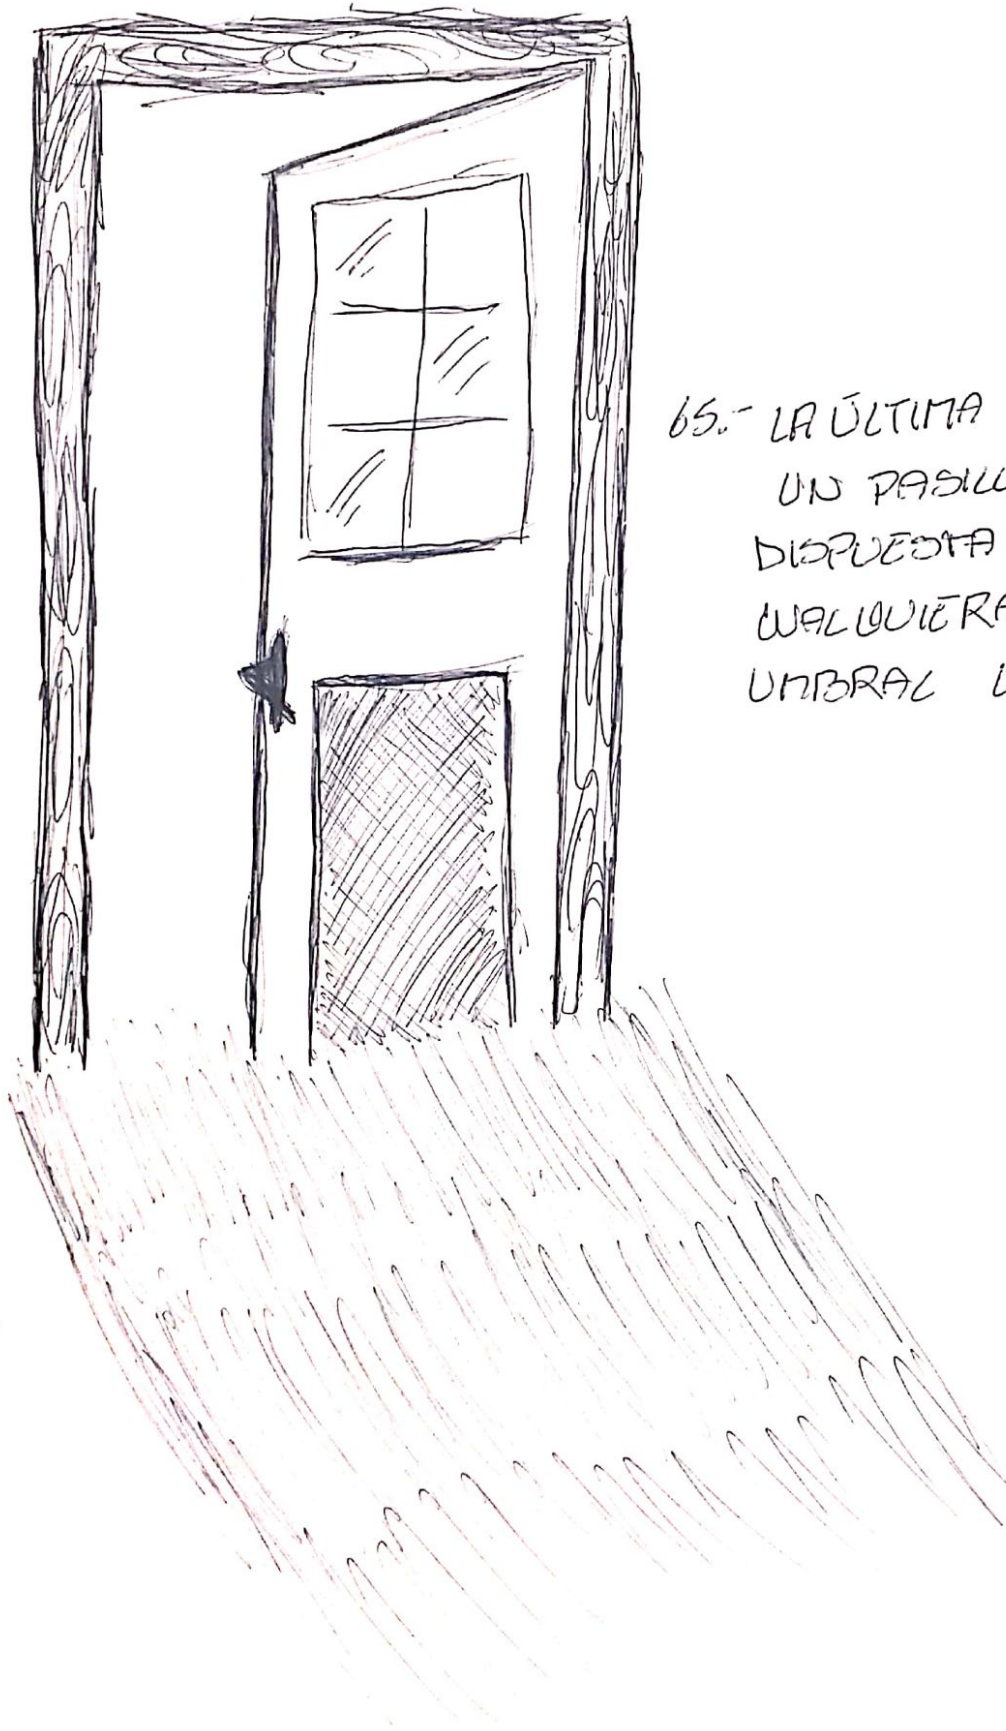 65.- LA ÚLTIMA
UN PASILLO
DISPUESTA
CUALQUIERA
UMBRAL